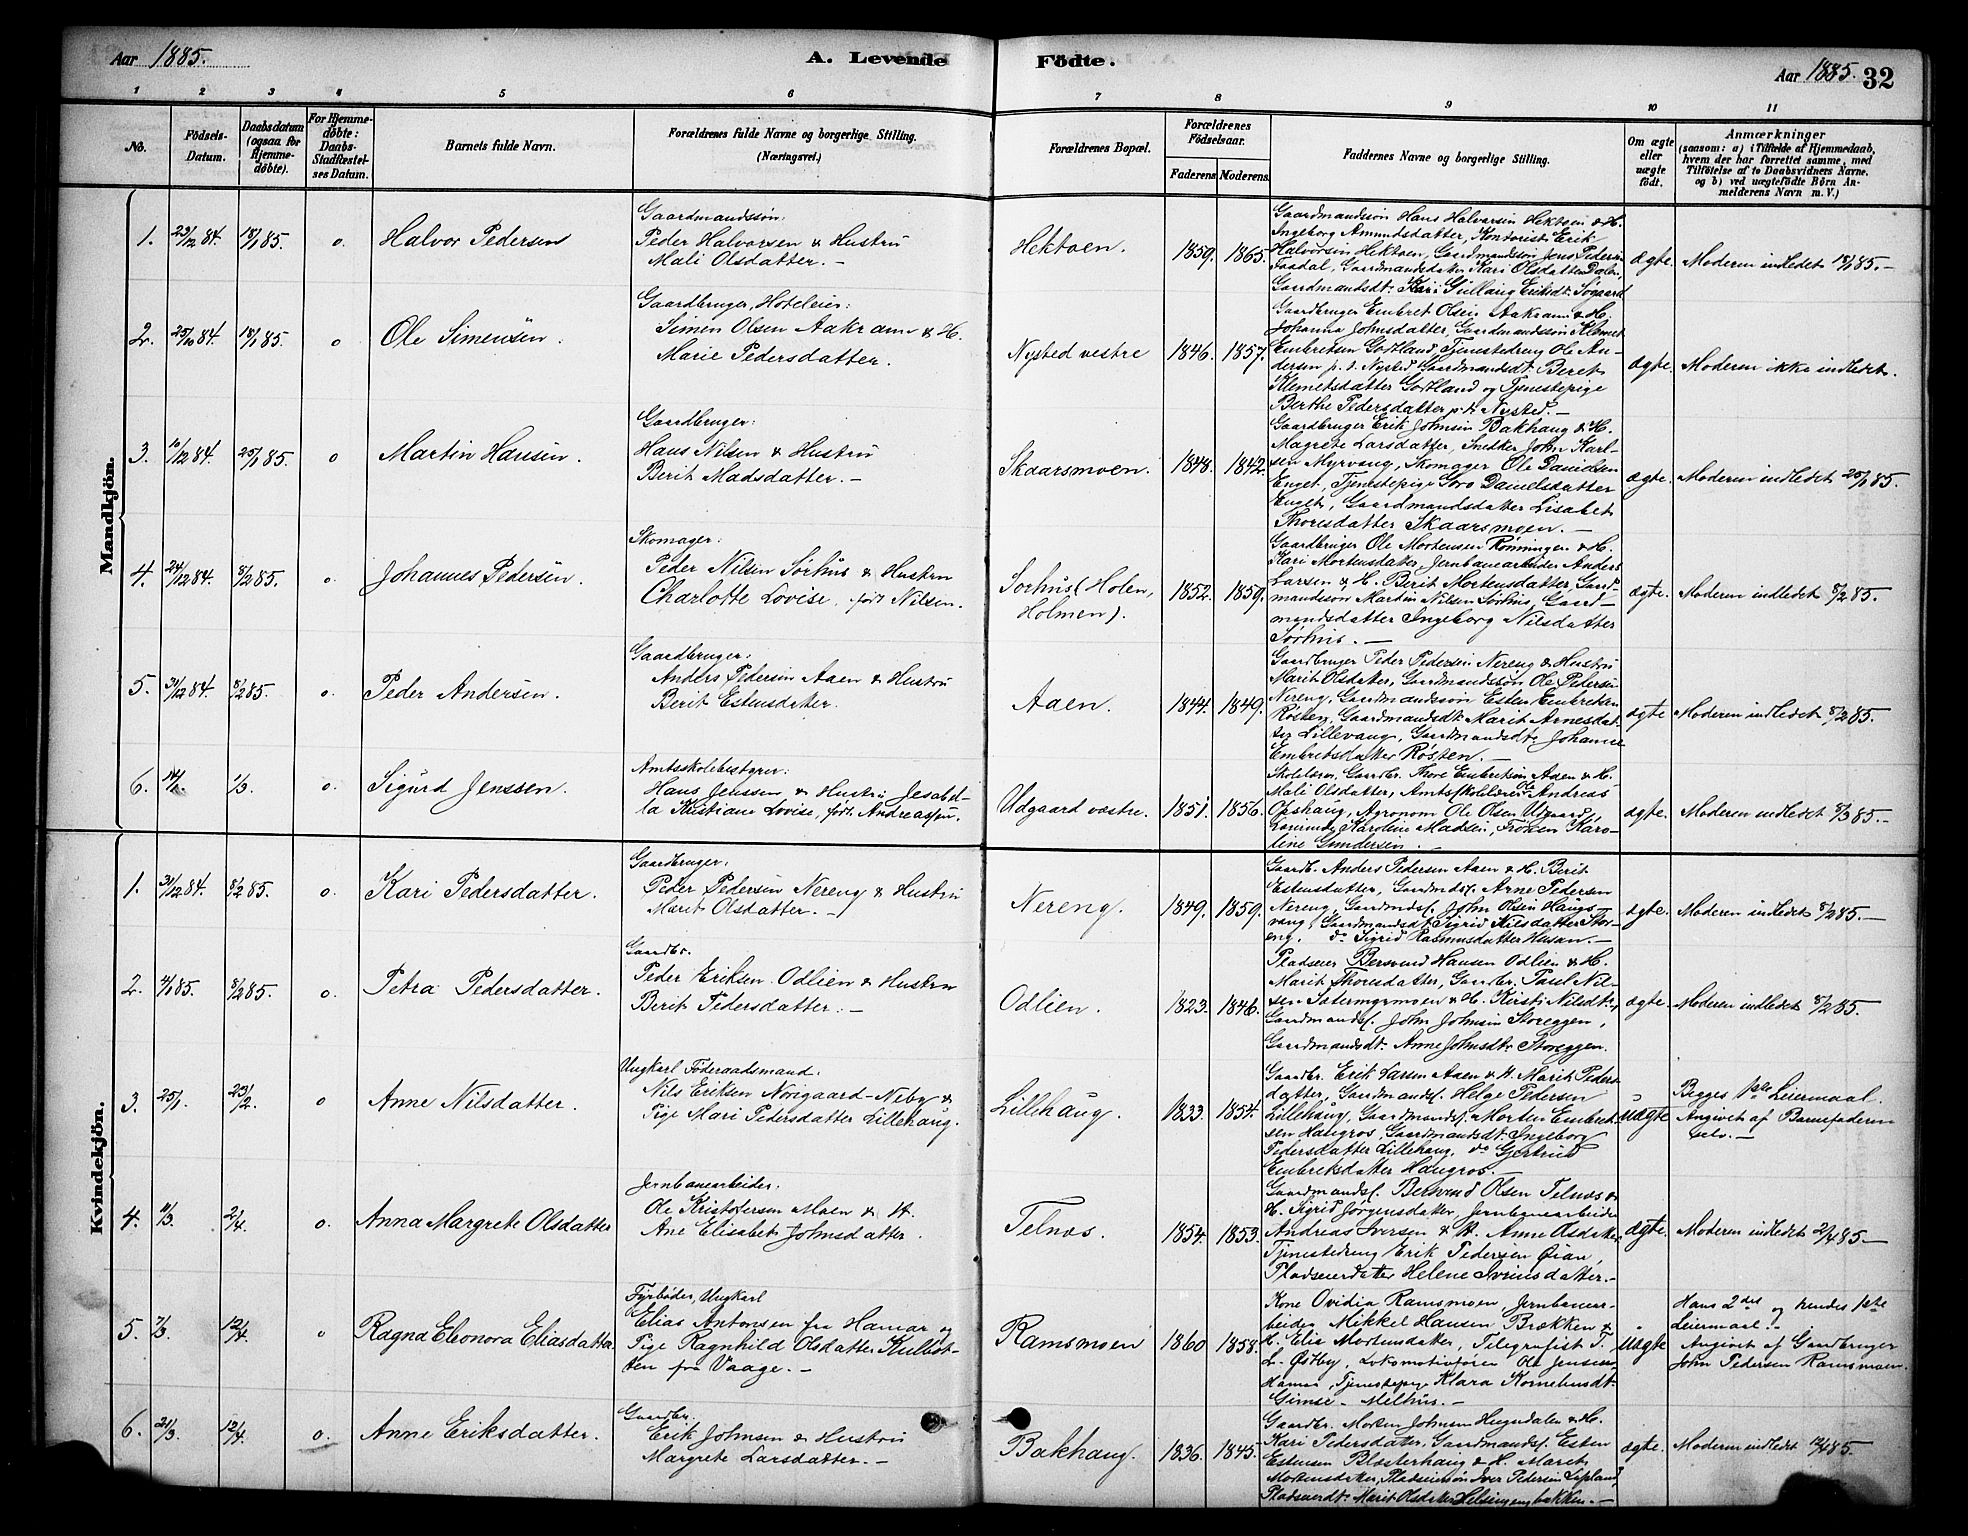 Aar 1885.
A. Levende Födte.
Aar 1885. 32
1 2 3 4 5 6 7 8 9 10 11
No.
Födsels-Datum.
Daabsdatum (ogsaa for Hjemmedöbte).
For Hjemmedöbte: Daabs-Stadfæstelses Datum.
Barnets fulde Navn.
Forældrenes fulde Navne og borgerlige Stilling.
(Næringsvei.)
Forældrenes Bopæl.
Forældrenes Födselsaar.
Faderens
Moderens.
Faddernes Navne og borgerlige Stilling.
Om ægte eller uægte födt.
Anmærkninger
(saasom: a) i Tilfælde af Hjemmedaab, hvem der har forrettet samme, med Tilföielse af to Daabsvidners Navne, og b) ved uægtefödte Börn Anmelderens Navn m. V.)
Mandkjön.
1. 23/12 84. 18/1 85. o. Halvor Pedersen
Gaardmandssön:
Peder Halvorsen & Hustru
Mali Olsdatter. —
Hektoen. 1859. 1865.
Gaardmandssön Hans Halvorsen Hektoen & H.
Ingeborg Amundsdatter, Kontorist Erik
Halvorsen Hektoen, Gaardmandssön Jens Pedersen
Faadal, Gaardmandsdatter Kari Olsdatter Dalen,
Gaardmandsdt. Kari Gullaug Eriksdt. Søgaard
ægte. Moderen indledet 18/1 85. —
2. 25/10 84. 18/1 85. o Ole Simensen.
Gaardbruger, Hoteleier:
Simen Olsen Aakrann & H.
Marie Pedersdatter.
Nysted vestre 1846. 1857.
Gaardbruger Embret Olsen Aakrann & H.
Johanna Johnsdatter, Gaardmandssön Klemet
Embretsen Godtland, Tjenestedreng Ole Andersen
p. t. Nysted, Gaardmandsdt. Beret
Klemetsdatter Godtland og Tjenestepige
Berthe Pedersdatter p. t. Nysted. —
ægte. Moderen ikke indledet.
3. 10/12 84. 25/1 85. o Martin Hansen.
Gaardbruger:
Hans Nilsen & Hustru
Berit Madsdatter. —
Skaarsmoen. 1848. 1842.
Gaardbruger Erik Johnsen Bakhaug & H.
Magrete Larsdatter, Snedker John Karlsen
Myrvang, Skomager Ole Danielsen
Enget, Tjenestepige Goro Danielsdatter
Enget, Gaardmandsdatter Lisabet
Thoresdatter Skaarsmoen. —
ægte. Moderen indledet 25/1 85.
4. 24/12 84. 8/2 85. o. Johannes Pedersen.
Skomager:
Peder Nilsen Sørhus & Hustru
Charlotte Lovise, født Nilsen.
Sørhus (Holen, Holmen). 1852. 1859.
Gaardbruger Ole Mortensen Rønningen & H.
Kari Mortensdatter, Jernbanearbeider Anders
Larsen & H. Berit Mortensdatter, Gaardmandssön
Martin Nilsen Sørhus, Gaardmandsdatter
Ingeborg Nilsdatter
Sørhus. —
ægte. Moderen indledet 8/2 85.
5. 31/12 84. 8/2 85. o. Peder Andersen.
Gaardbruger:
Anders Pedersen Aaen & Hustru
Berit Estensdatter.
Aaen. 1844. 1849.
Gaardbruger Peder Pedersen Nereng & Hustru
Marit Olsdatter, Gaardmandssön Ole Pedersen
Nereng, Gaardmandssön Esten Embretsen
Røsten, Gaardmandsdt. Marit Arnesdatter
Lillevang, Gaardmandsdt. Johanne
Embretsdatter Røsten. —
ægte Moderen indledet 8/2 85.
6. 14/1. 1/3. o. Sigurd Jenssen.
Amtsskolebestyrer:
Hans Jenssen & Hustru Jesabella
Kristiane Lovise, født Andreassen.
Udgaard vestre. 1851. 1856.
Skolelærer, Gaardbr. Thore Embretsen Aaen & H.
Mali Olsdatter, Amtsskolelærer Ole Andreas
Opshaug, Agronom Ole Olsen Udgaard,
Lærerinde Karoline Madsen, Frøken Karoline
Gundersen. —
ægte. Moderen indledet 8/3 85. —
Kvindekjön.
1. 31/12 84. 8/2 85. o. Kari Pedersdatter.
Gaardbruger:
Peder Pedersen Nereng & Hustru
Marit Olsdatter. —
Nereng. 1849. 1859.
Gaardb. Anders Pedersen Aaen & H. Berit
Estensdatter, Gaardmds. Arne Pedersen
Nereng, Gaardmds. John Olsen Haugsvang,
Gaardmandsdt. Sigrid Nilsdatter Storeng,
do Sigrid Rasmusdatter Husan. —
ægte. Moderen indledet 8/2 85. —
2. 4/1 85. 8/2 85. o. Petra Pedersdatter.
Gaardbr.
Peder Eriksen Odlien & Hustru
Berit Pedersdatter. —
Odlien. 1823. 1846.
Pladseier Bersvend Hansen Odlien & H.
Marit Thoresdatter, Gaardbr. Paul Nilsen
Sætermyrmoen & H. Kirsti Nilsdt.,
Gaardmands. John Johnsen Storeggen,
Gaardmandsdt. Anne Johnsdtr Storeggen.
ægte. Moderen indledet 8/2 85.
3. 25/1. 23/2. o Anne Nilsdatter.
Ungkarl Föderaadsmand:
Nils Eriksen Norigaard-Neby &
Pige Mari Pedersdatter Lillehaug.
Lillehaug. 1833. 1854.
Gaardbr. Erik Larsen Aaen & H. Marit Pedersdatter,
Gaardmands. Helge Pedersen
Lillehaug, Gaardmands. Morten Embretsen
Haugros, Gaardmandsdt. Ingeborg
Pedersdatter Lillehaug, do Gjertrud
Embretsdatter Haugros. —
uægte Begges 1ste Leiermaal.
Angivet af Barnefaderen
selv. —
4. 11/3. 2/4. o. Anna Margrete Olsdatter
Jernbanearbeider:
Ole Kristofersen Moen & H.
Ane Elisabet Johnsdatter.
Telnæs. 1854. 1853.
Gaardmands. Bersvend Olsen Telnæs &
H. Sigrid Jørgensdatter, Jernbanearbeider
Andreas Iversen & H. Anne Olsdatter,
Tjenestedreng Erik Pedersen Øian,
Pladseierdatter Helene Svensdatter. —
ægte. Moderen indledet 2/4 85. —
5. 7/3. 12/4. o Ragna Eleonora Eliasdatter
Fyrbøder, Ungkarl
Elias Antonsen fra Hamar og
Pige Ragnhild Olsdatter
fra Vaage. —
Ramsmoen 1860 1858.
Kone Ovidia Ramsmoen, Jernbanearbeider
Mikkel Hansen Brækken &
H. Elia Mortensdatter, Telegrafist T.
L. Østby, Lokomotivfører Ole Jensen
Hamar, Tjenestepige Klara Korneliusdt.
Gimse — Melhus. —
uægte Hans 2det og hendes 1ste
Leiermaal. —
Angivet af Gaardbruger
John Pedersen Ramsmoen.
6. 21/3. 12/4. o. Anne Eriksdatter.
Gaardbr.
Erik Johnsen & Hustru
Margrete Larsdatter. —
Bakhaug. 1836. 1845.
Gaardbr. Morten Johnsen & H.
Kari Pedersdatter, Gaardmands. Esten
Estensen Blæsterhaug & H. Marit
Mortensdatter, Pladseiersön Iver Pedersen
Pladseierdt. Marit Olsdatter —
ægte. Moderen indledet 12/4 85. —